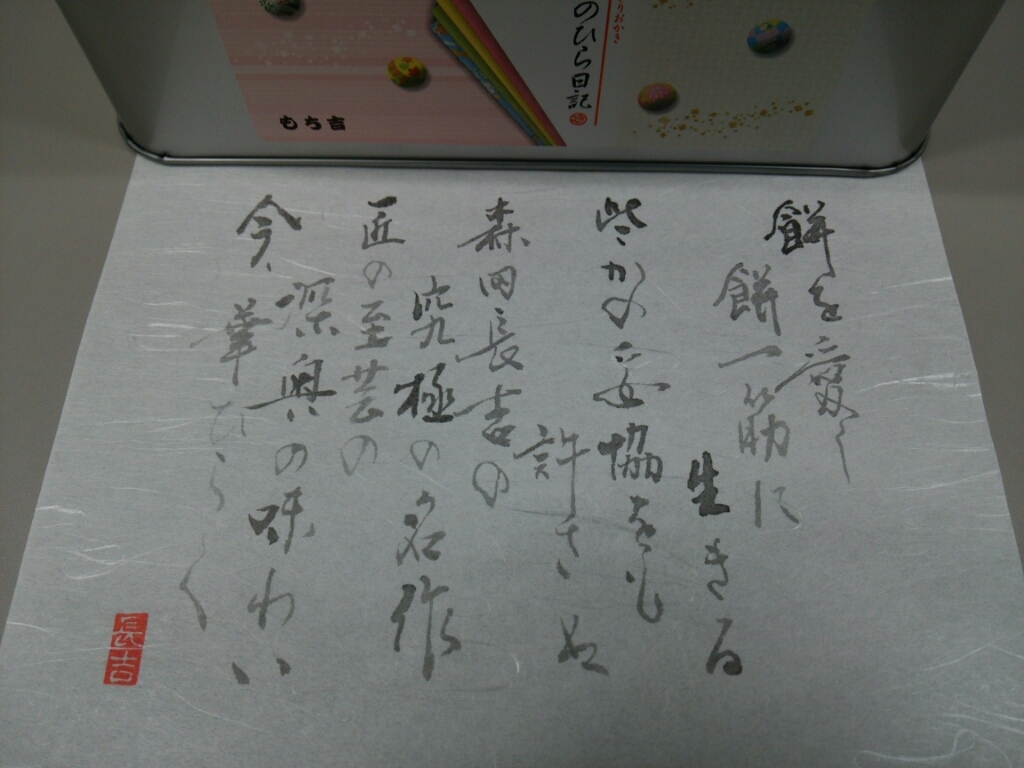 のひら日記
もち吉
餅を愛し
餅一筋に
生きる
些かの妥協をも
許さぬ
森田長吉の
究極の名作
匠の至芸の
深奥の味わい
今、華ひらく
長吉